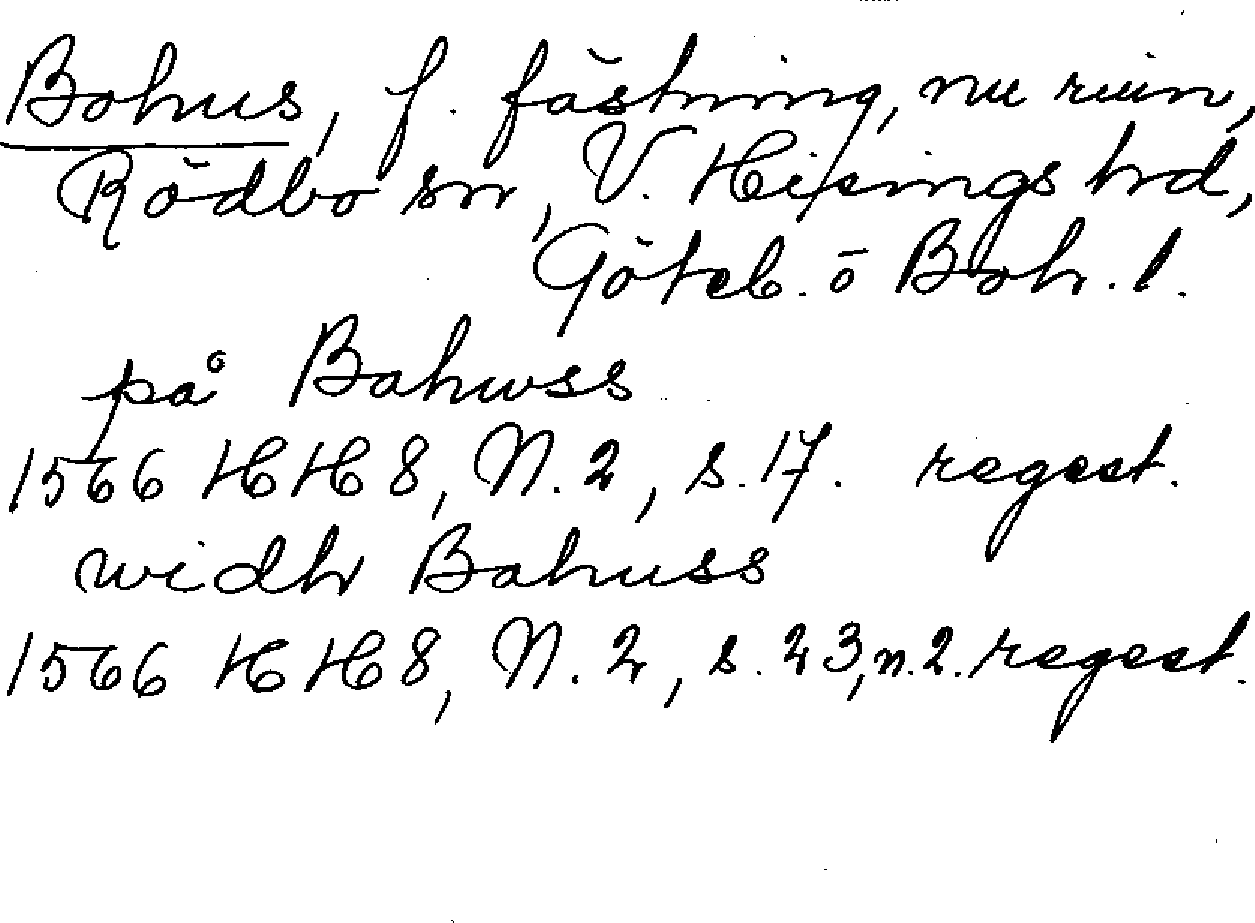 Bohus, f. fästning, nu ruin,
Rödbo sn, V. Hisings hd,
Göteb. o Boh. l.
på Bahwss
1566 HH 8, N. 2, s. 17. regest.
widh Bahuss
1566 HH 8, N. 2, s. 23, n. 2. regest.